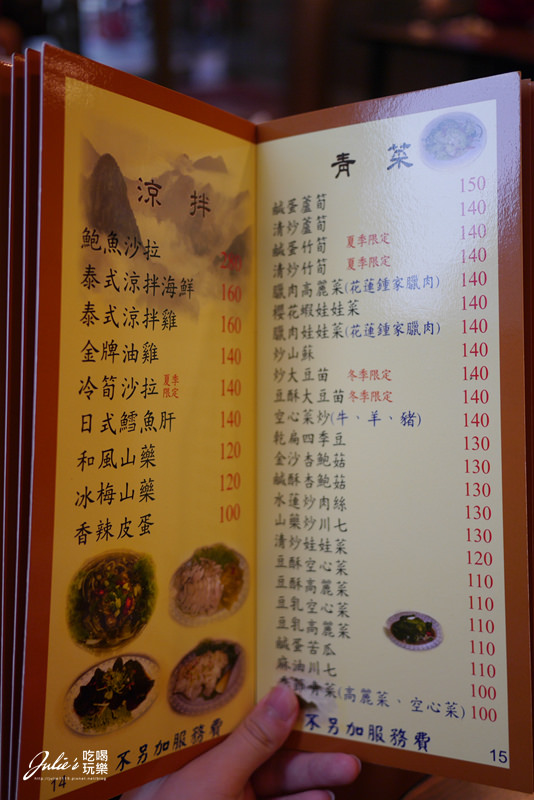 涼拌
鮑魚沙拉
泰式涼拌海鮮 160
泰式涼拌雞 160
金牌油雞 140
冷筍沙拉 夏季限定 140
日式鱈魚肝 140
和風山藥 120
冰梅山藥 120
香辣皮蛋 100
不另加服務費
14
青菜
鹹蛋蘆筍 150
清炒蘆筍 140
鹹蛋竹筍 夏季限定 140
清炒竹筍 夏季限定 140
臘肉高麗菜(花蓮鍾家臘肉) 140
櫻花蝦娃娃菜 140
臘肉娃娃菜(花蓮鍾家臘肉) 140
炒山蘇 140
炒大豆苗 冬季限定 140
豆酥大豆苗 冬季限定 140
空心菜炒(牛、羊、豬) 140
乾扁四季豆 130
金沙杏鮑菇 130
鹹酥杏鮑菇 130
水蓮炒肉絲 130
山藥炒川七 130
清炒娃娃菜 120
豆酥空心菜 110
豆酥高麗菜 110
豆乳空心菜 110
豆乳高麗菜 110
鹹蛋苦瓜 110
麻油川七 100
青菜(高麗菜、空心菜) 100
不另加服務費
15
Julie's 吃喝玩樂